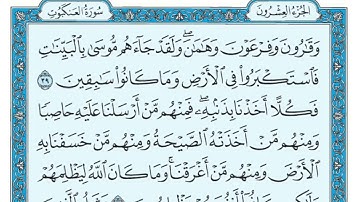 الجزء العشرون
سورة العنكبوت
وَقَٰرُونَ وَفِرْعَوْنَ وَهَٰمَٰنَ ۖ وَلَقَدْ جَآءَهُم مُّوسَىٰ بِٱلْبَيِّنَٰتِ
فَٱسْتَكْبَرُوا۟ فِى ٱلْأَرْضِ وَمَا كَانُوا۟ سَٰبِقِينَ ٣٩
فَكُلًّا أَخَذْنَا بِذَنۢبِهِۦ ۖ فَمِنْهُم مَّنْ أَرْسَلْنَا عَلَيْهِ حَاصِبًا
وَمِنْهُم مَّنْ أَخَذَتْهُ ٱلصَّيْحَةُ وَمِنْهُم مَّنْ خَسَفْنَا بِهِ
ٱلْأَرْضَ وَمِنْهُم مَّنْ أَغْرَقْنَا ۚ وَمَا كَانَ ٱللَّهُ لِيَظْلِمَهُمْ